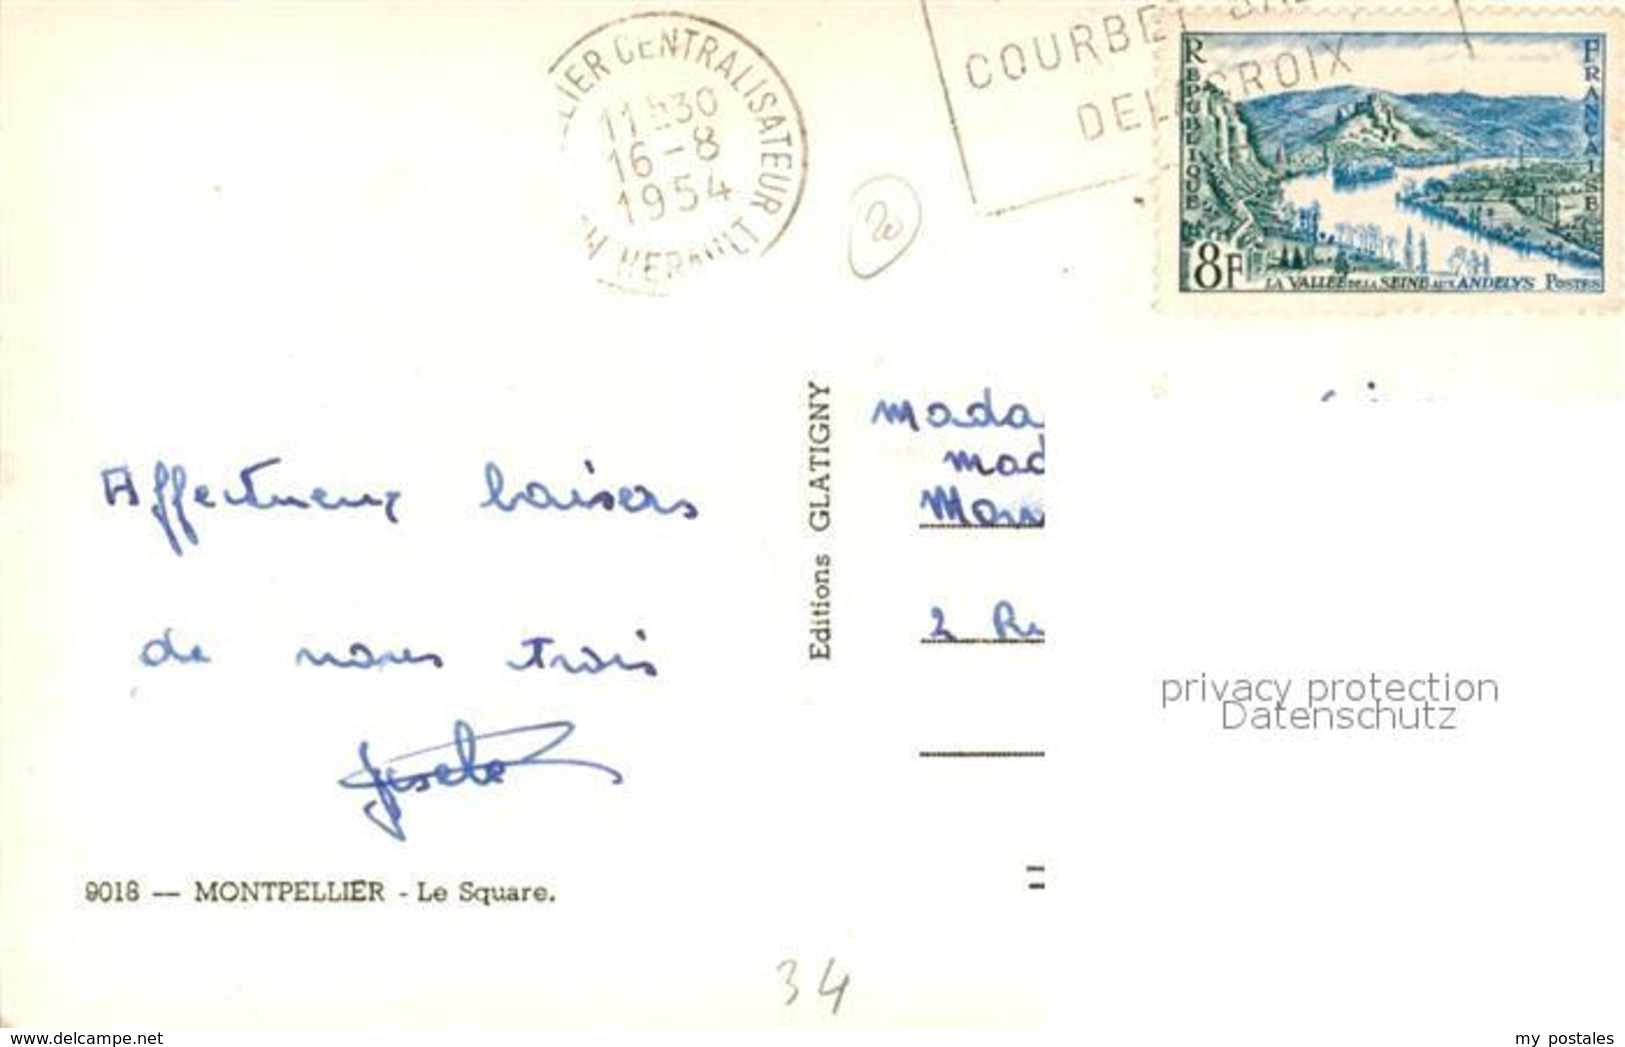 COURBET
DELACROIX
LIER CENTRALISATEUR
11h30
16-8
1954
HERAULT
20
REPUBLIQUE
FRANCAISE
8F
LA VALLEE DE LA SEINE AUX ANDELYS POSTES
Affectueux baisers
de nous trois
Gisele
9018 — MONTPELLIER - Le Square.
Editions GLATIGNY
mada
mad
2 Ru
privacy protection
Datenschutz
34
www.delcampe.net
my postales